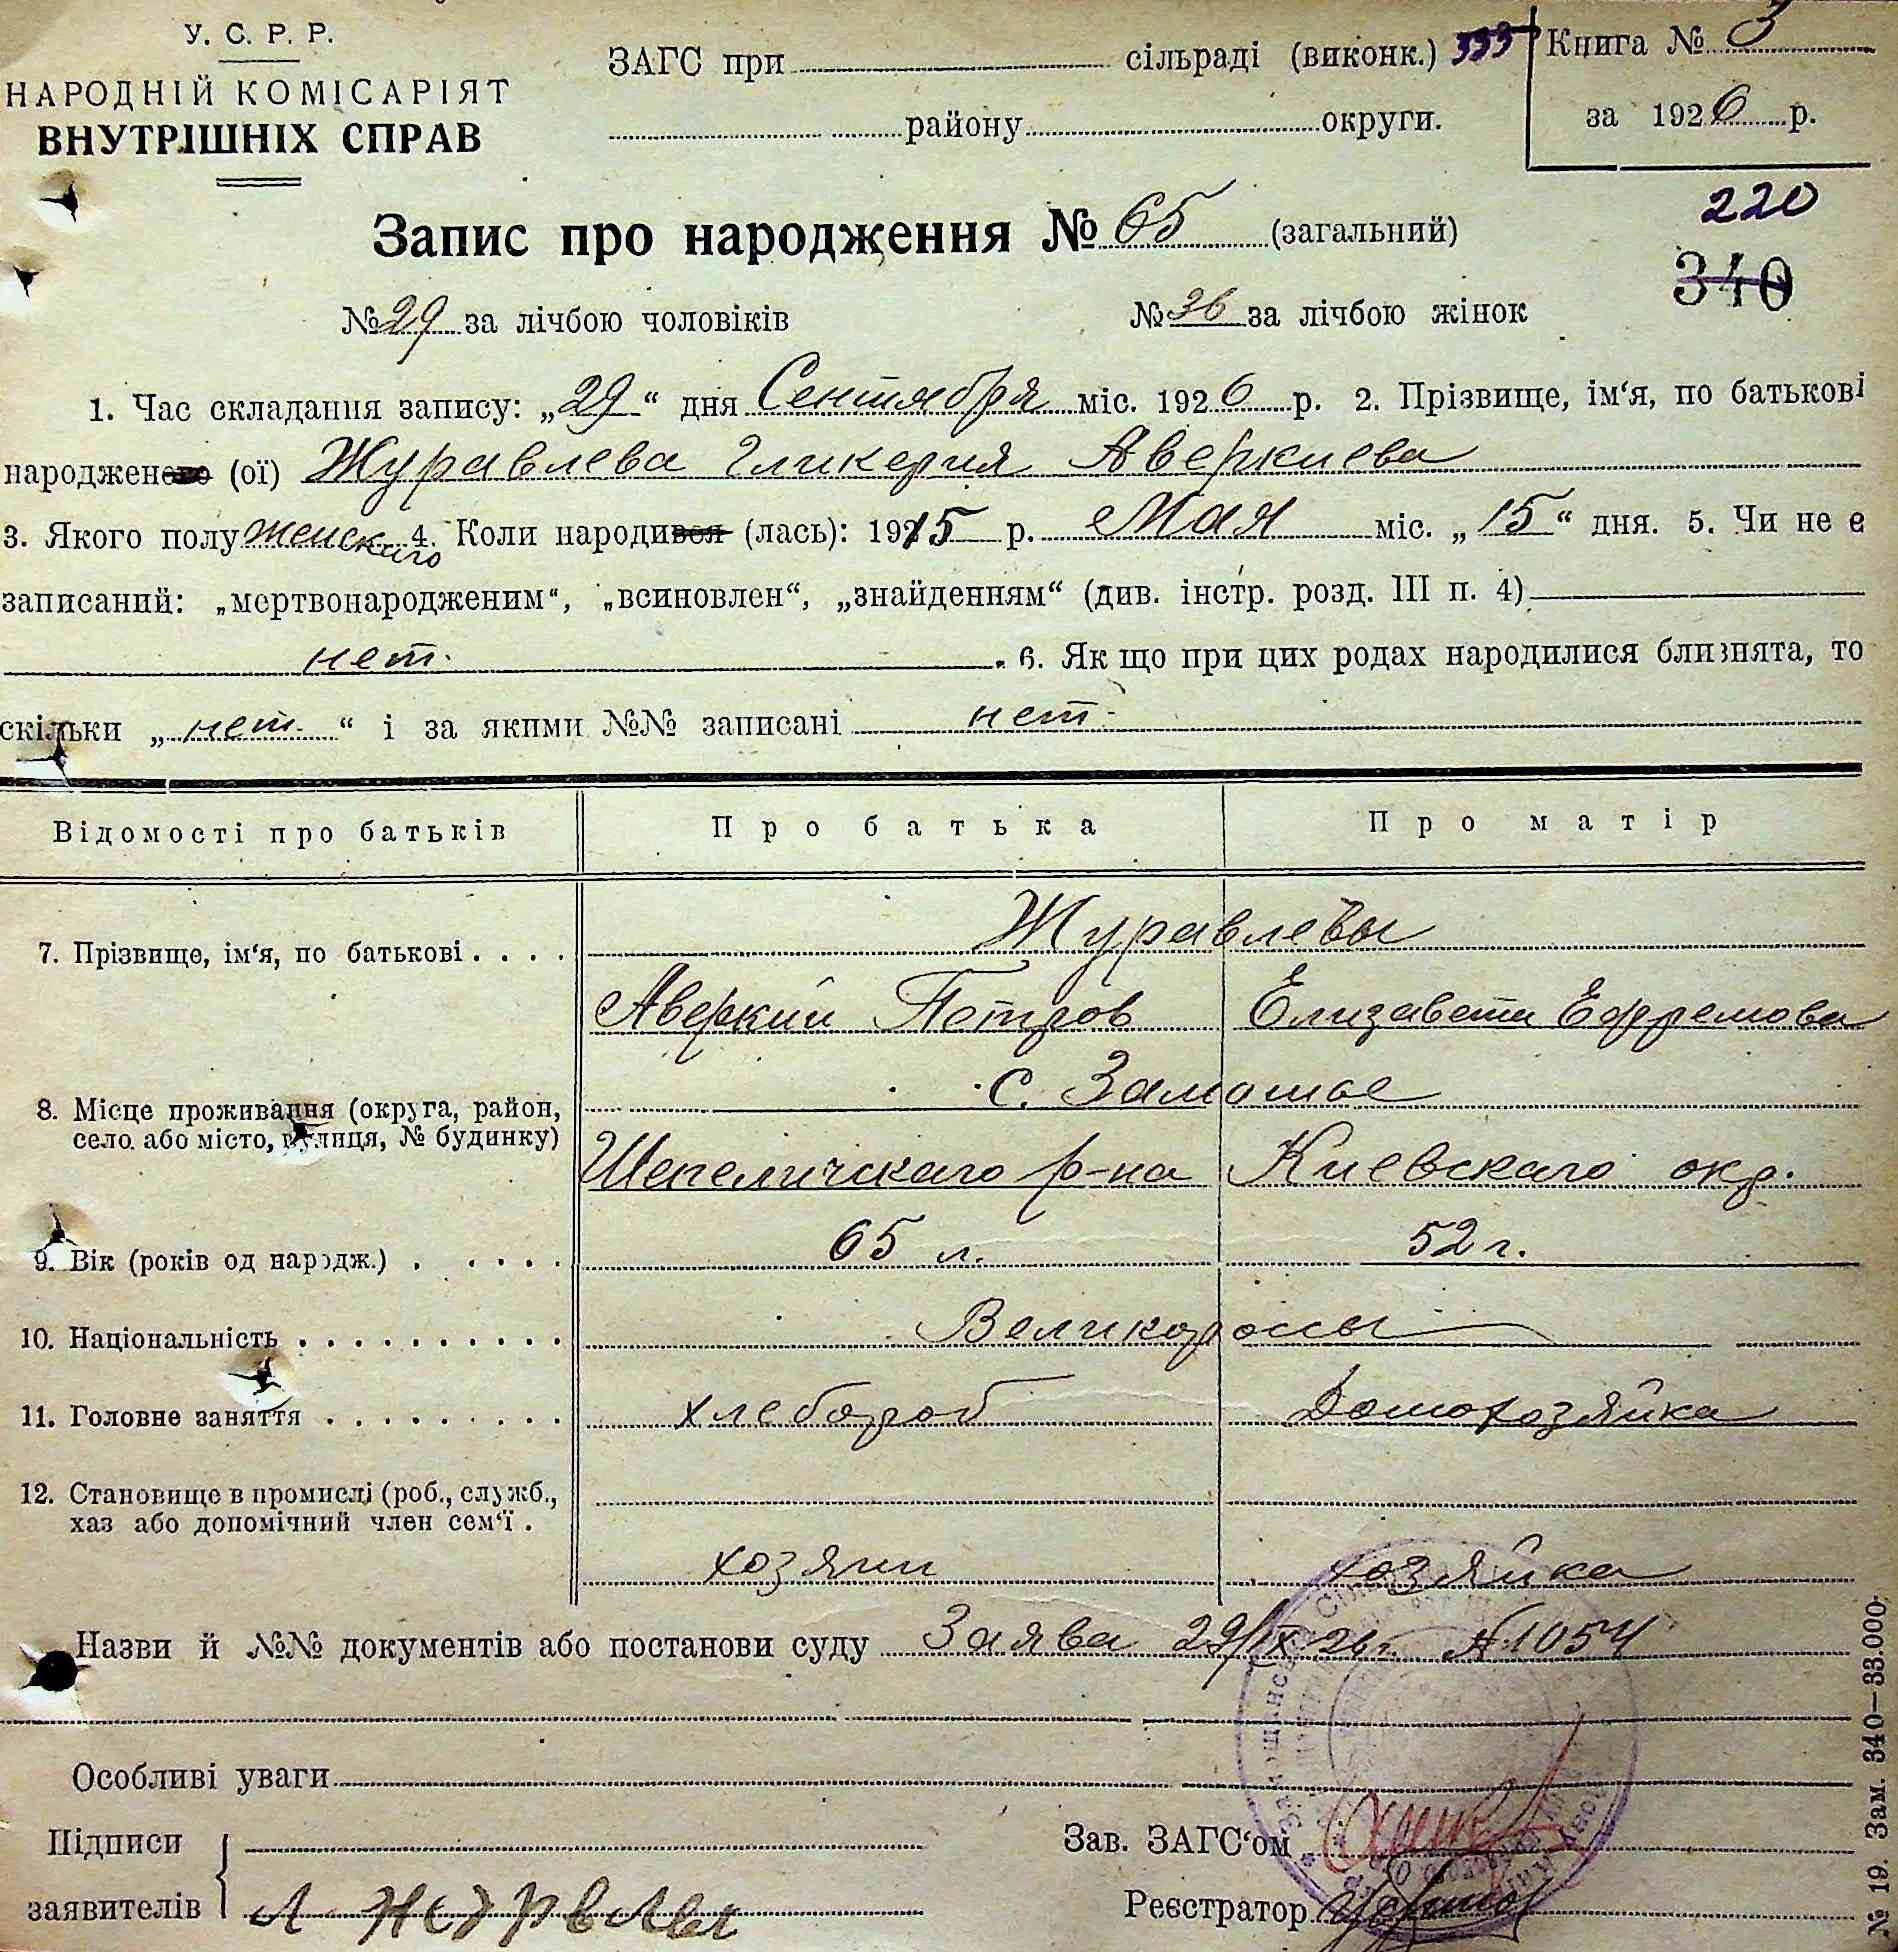 У. С. Р. Р.
НАРОДНІЙ КОМІСАРІЯТ
ВНУТРІШНІХ СПРАВ
ЗАГС при сільраді (виконк.) 333
району округи.
Книга № 3
за 1926 р.
220
340
Запис про народження № 65 (загальний)
№ 29 за лічбою чоловіків № 36 за лічбою жінок
1. Час складання запису: „29“ дня Сентября міс. 1926 р. 2. Прізвище, ім‘я, по батькові
народженого (ої) Журавлева Гликерия Аверкиева
3. Якого полу женскаго 4. Коли народився (лась): 1915 р. Мая міс. „15“ дня. 5. Чи не є
записаний: „мертвонародженим“, „всиновлен“, „знайденням“ (див. інстр. розд. III п. 4)
нет. 6. Як що при цих родах народилися близнята, то
скільки „нет.“ і за якими №№ записані нет.
Відомості про батьків Про батька Про матір
Журавлевы
7. Прізвище, ім‘я, по батькові . . . .
Аверкий Петров Елизавета Ефремова
с. Замошье
8. Місце проживання (округа, район,
село або місто, вулиця, № будинку)
Шепеличскаго р-на Киевскаго окр.
9. Вік (років од народж.) . . . . . 65 л. 52 г.
10. Національність . . . . . . . . . . Великороссы
11. Головне заняття . . . . . . . . . хлебороб Домохозяйка
12. Становище в промислі (роб., служб.,
хаз або допомічний член сем‘ї .
хозяин хозяйка
Назви й №№ документів або постанови суду Заява 29/IX 26 г. № 1054
Особливі уваги
Підписи
заявителів
Зав. ЗАГС‘ом
Реєстратор
№ 19. Зам. 340—33.000.